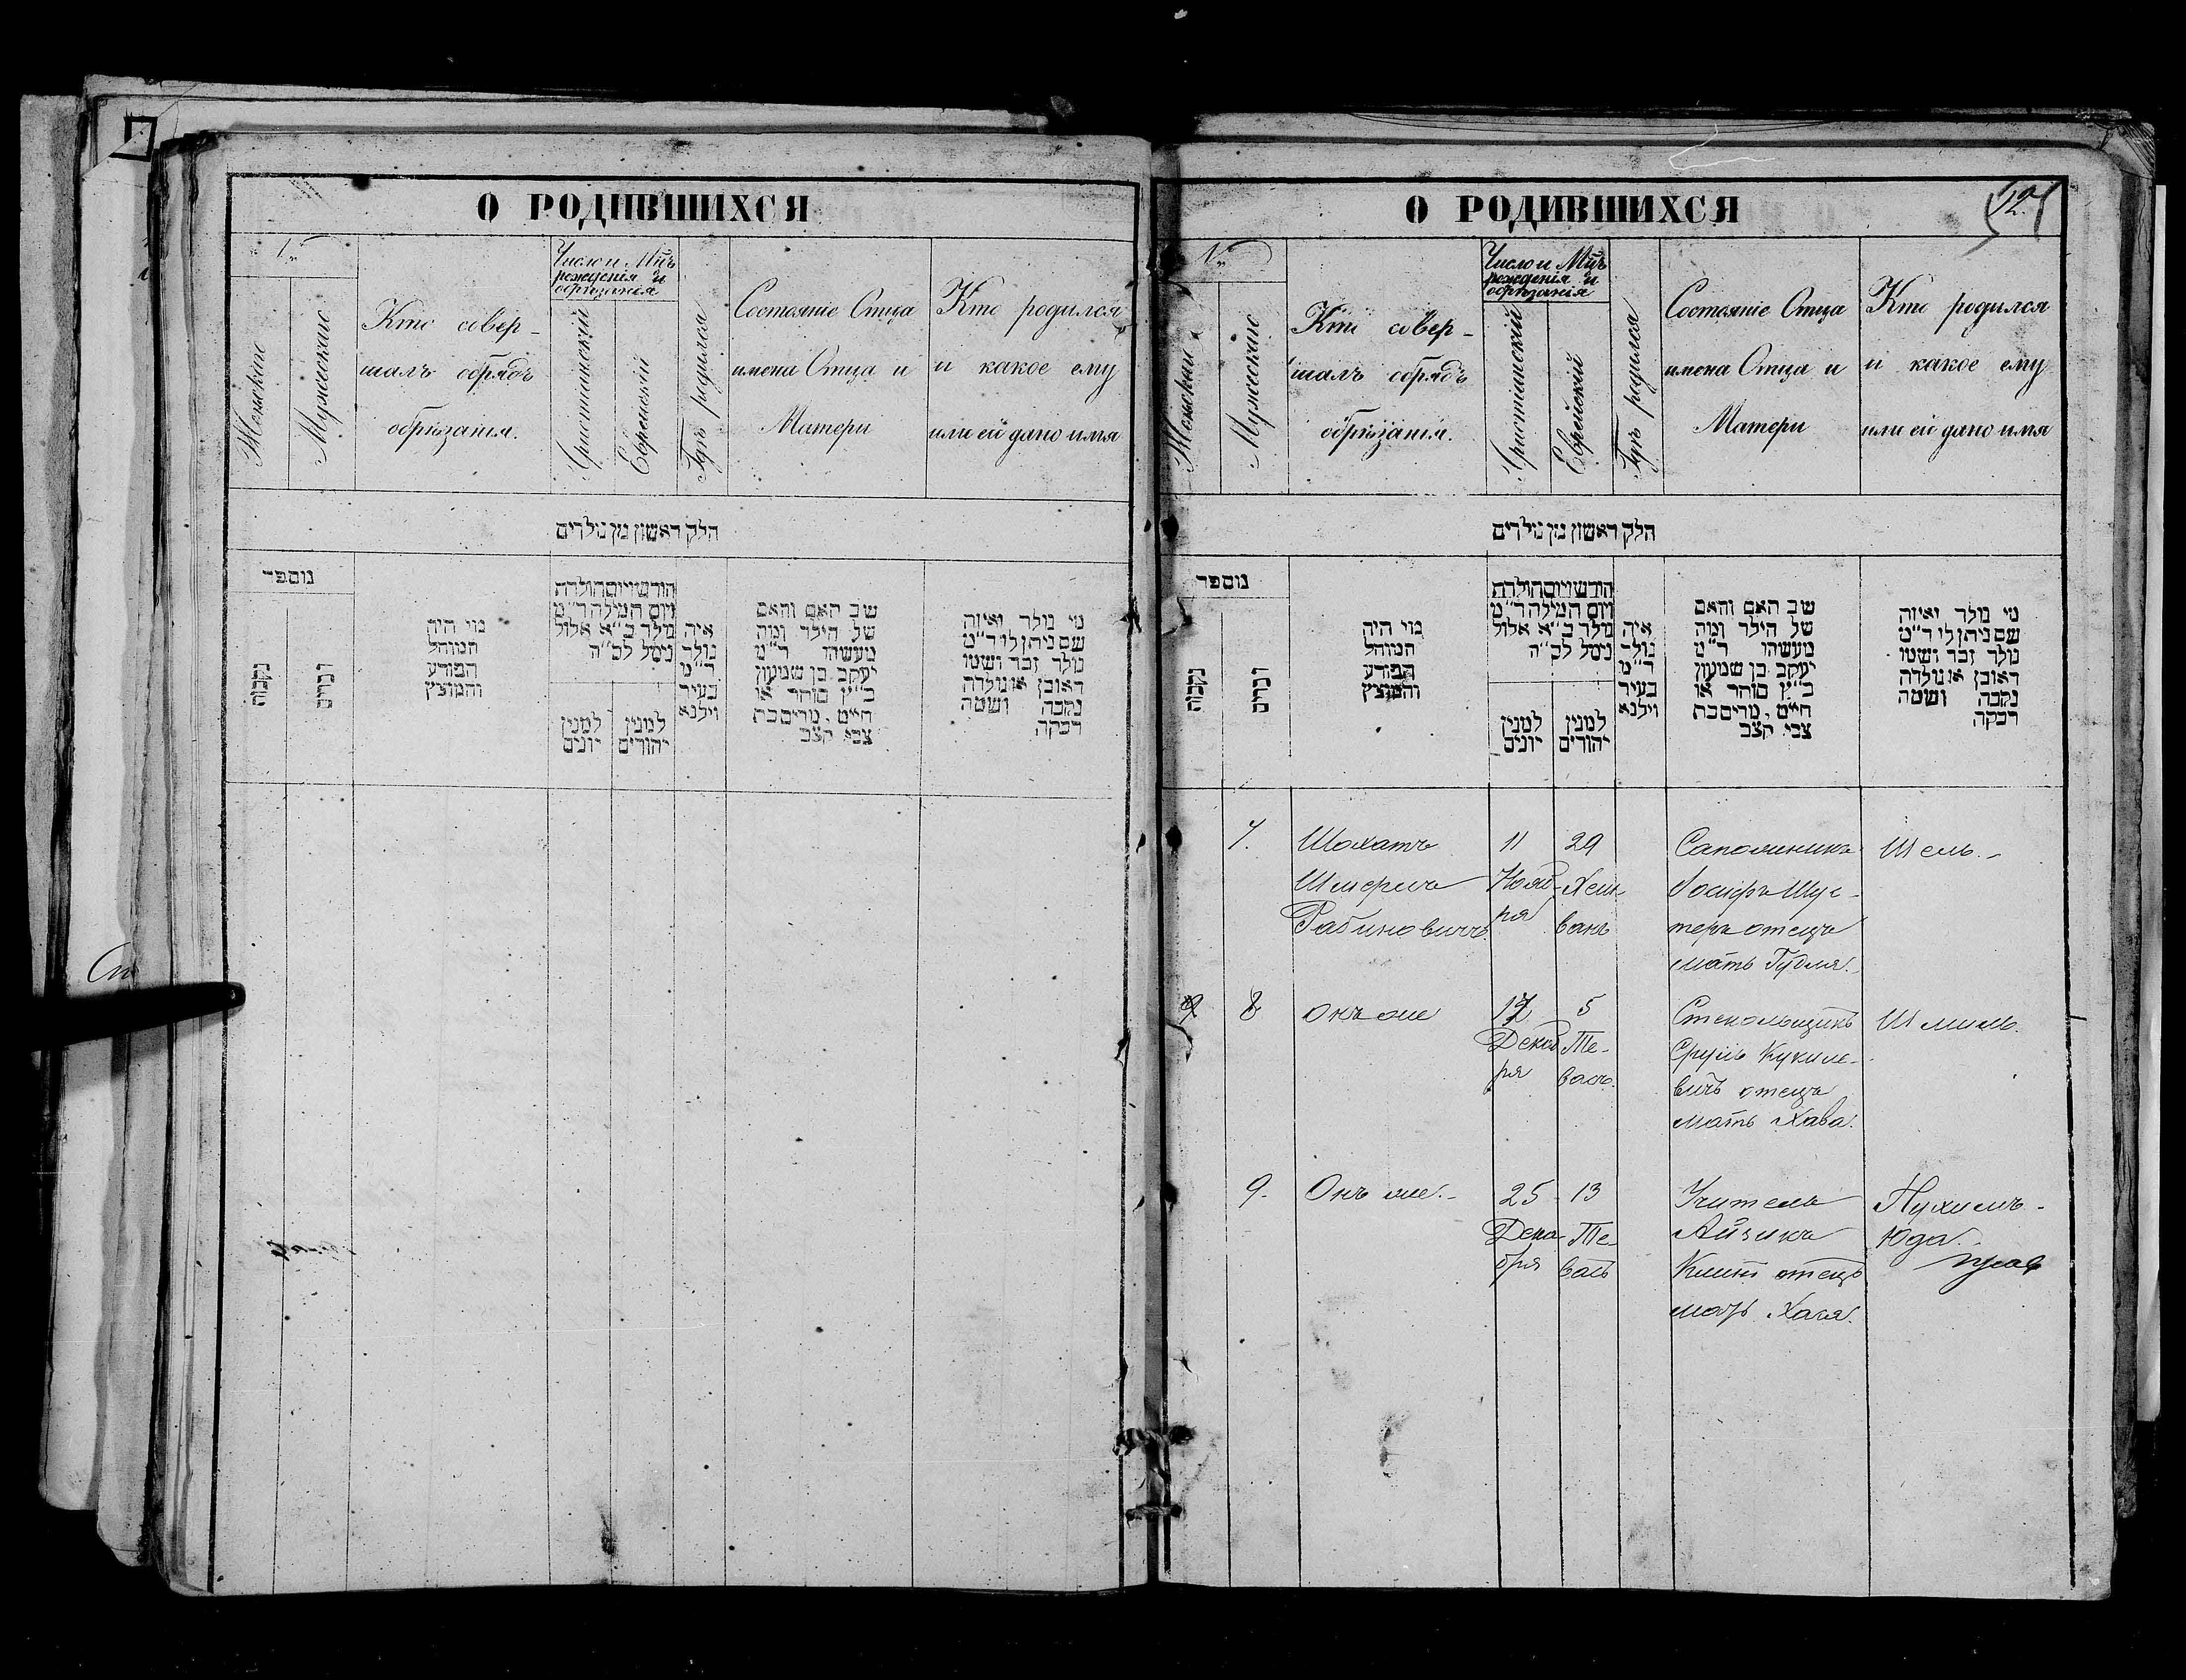 О РОДИВШИХСЯ
№
Женскаго
Мужескаго
Кто совер-
шалъ обрядъ
обрѣзанія.
Число и Мц҃ъ
рожденія и
обрѣзанія
Христіанскій
Еврейскій
Гдѣ родился
Состояніе Отца
имена Отца и
Матери
Кто родился
и какое ему
или ей дано имя
חלק ראשון מן נולדים
נומפר
נקבות
זכרים
מי היה
המוהל
הפורע
והמוצץ
חודש ויום הולדת
ויום המילה ד״מ
נולד כ״א אלול
נימל לס״ה
למנין
יונים
למנין
יהודים
איה
נולד
ד״מ
בעיר
וילנא
שב האם והאם
של הילד ומה
מעשהו ד״מ
יעקב בן שמעון
כ״ץ סוחר או
חייט. מרים בת
צבי קצב
מי נולד ואיזה
שם ניתן לו ד״מ
נולד זכר ושמו
ראובן או נולדה
נקבה ושמה
רבקה
О РОДИВШИХСЯ
12
№
Женскаго
Мужескаго
Кто совер-
шалъ обрядъ
обрѣзанія.
Число и Мц҃ъ
рожденія и
обрѣзанія
Христіанскій
Еврейскій
Гдѣ родился
Состояніе Отца
имена Отца и
Матери
Кто родился
и какое ему
или ей дано имя
חלק ראשון מן נולדים
נומפר
נקבות
זכרים
מי היה
המוהל
הפורע
והמוצץ
חודש ויום הולדת
ויום המילה ד״מ
נולד כ״א אלול
נימל לס״ה
למנין
יונים
למנין
יהודים
איה
נולד
ד״מ
בעיר
וילנא
שב האם והאם
של הילד ומה
מעשהו ד״מ
יעקב בן שמעון
כ״ץ סוחר או
חייט. מרים בת
צבי קצב
מי נולד ואיזה
שם ניתן לו ד״מ
נולד זכר ושמו
ראובן או נולדה
נקבה ושמה
רבקה
7. Шохатъ 11 29 Сапожникъ
Шмерко Нояб- Хеш- Іосифъ Шус-
Рабиновичъ. ря ванъ теръ отецъ
мать Гудля.
8 Онъ же 17 5 Стекольщикъ Шмиль.
Декаб Те- Сруль Кукиле-
ря васъ. вичъ отецъ
мать Хава.
9. Онъ же. 25 13 Учитель Нухимъ-
Дека- Те- Айзикъ Юда.
бря васъ отецъ
мать Хая.